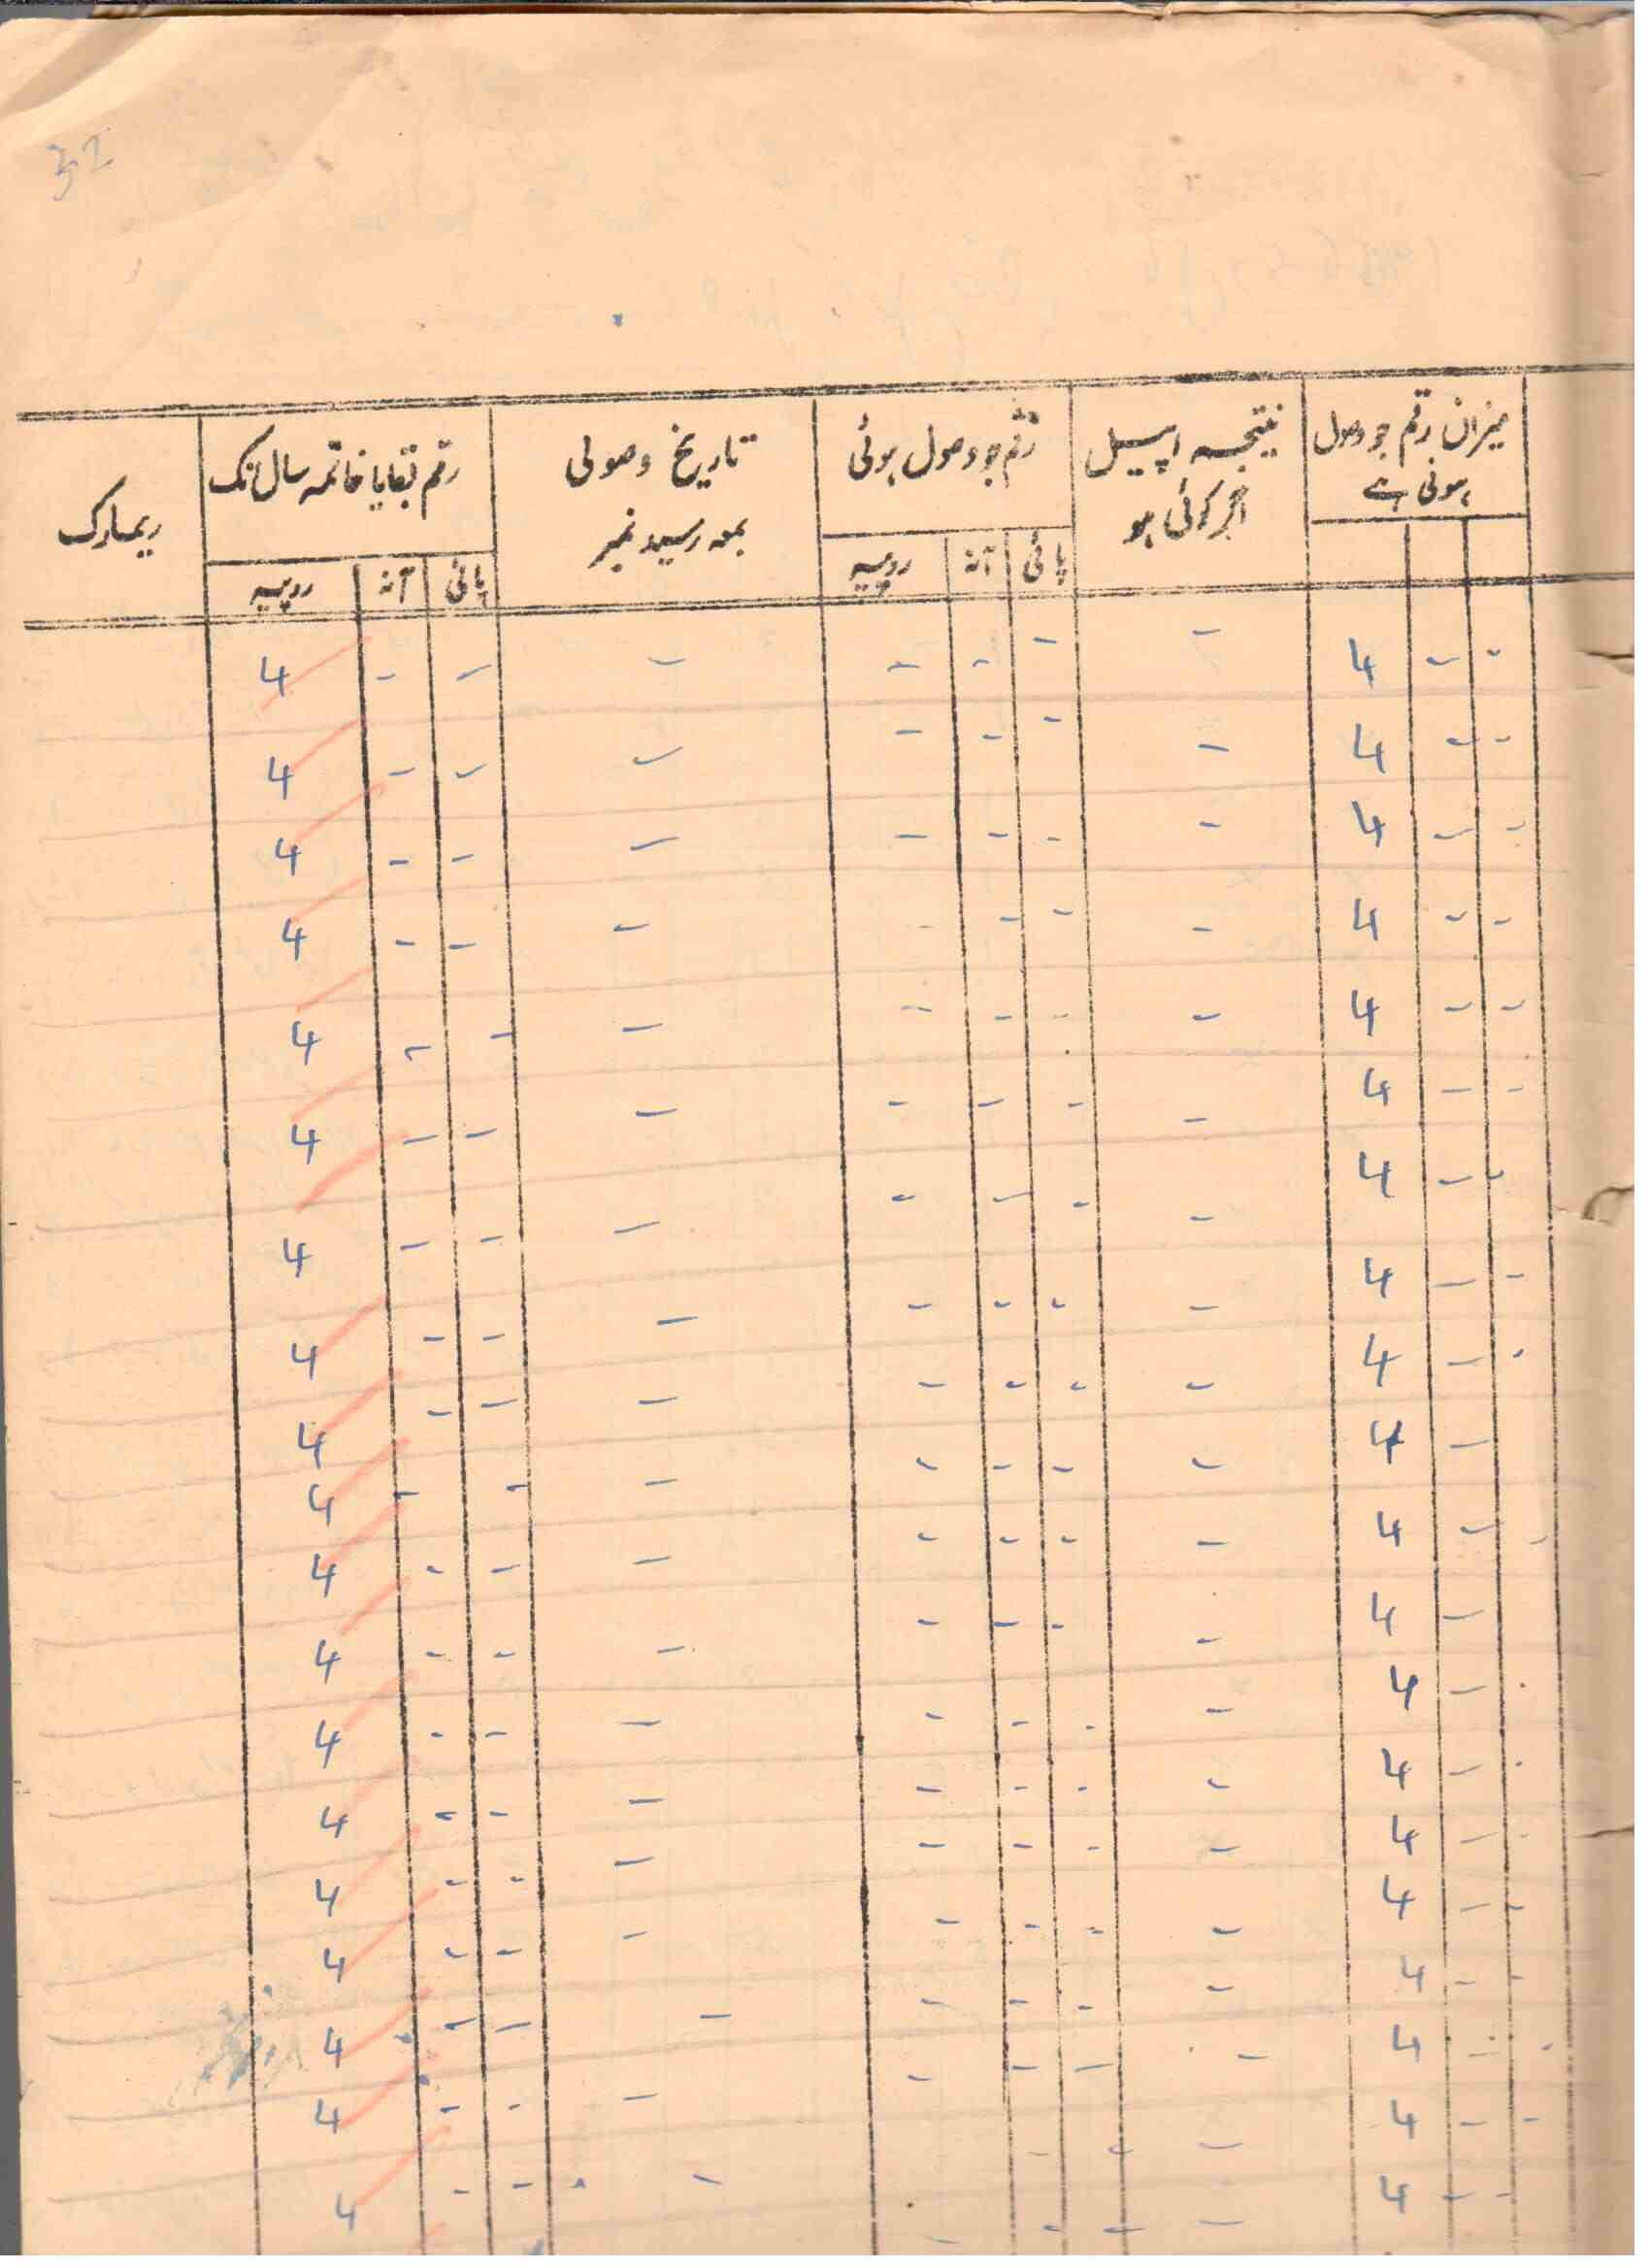 32
میزان رقم جو وصول ہونی ہے
نتیجہ اپیل اگر کوئی ہو
رقم جو وصول ہوئی
تاریخ وصولی
بمعہ رسید نمبر
رقم بقایا خاتمہ سال تک
ریمارک
پائی آنہ روپیہ
پائی آنہ روپیہ
- - 4 - - - - - - - 4
- - 4 - - - - - - - 4
- - 4 - - - - - - - 4
- - 4 - - - - - - - 4
- - 4 - - - - - - - 4
- - 4 - - - - - - - 4
- - 4 - - - - - - - 4
- - 4 - - - - - - - 4
- - 4 - - - - - - - 4
- 4 - - - - - - - 4
- - 4 - - - - - - - 4
- 4 - - - - - - - 4
- - 4 - - - - - - - 4
- - 4 - - - - - - - 4
- - 4 - - - - - - - 4
- - 4 - - - - - - - 4
- - 4 - - - - - - - 4
- - 4 - - - - - - - 4
- - 4 - - - - - - 4
- - 4 - - - -